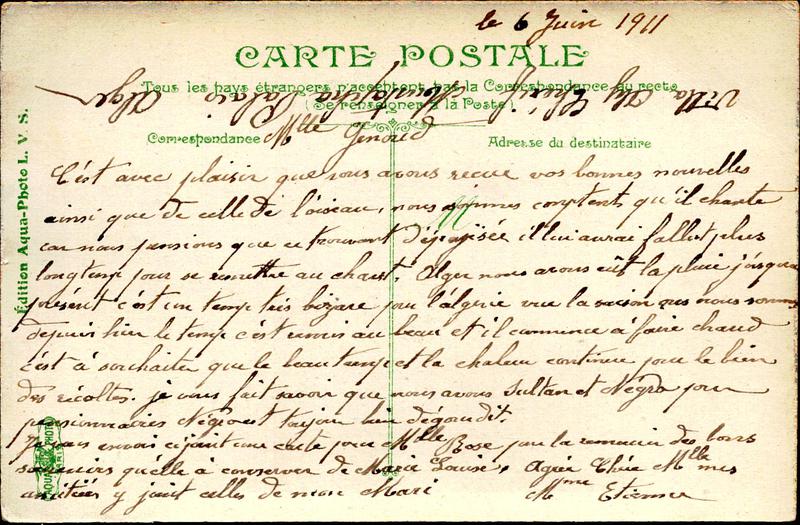 le 6 Juin 1911
CARTE POSTALE
Tous les pays étrangers n'acceptent pas la Correspondance au recto
(Se renseigner à la Poste)
Villa Aly Chérif Mustapha Palais Alger
Correspondance
Adresse du destinataire
Mlle Genoud
C'est avec plaisir que nous avons recue vos bonnes nouvelles
ainsi que de celle de l'oiseau, nous sommes comptents qu'il chante
car nous pensions que ce trouvant dépaysée il lui aurai fallut plus
longtemp pour se remettre au chant. Alger nous avons eût la pluie jusqu'a
présent c'est un temp très bizare pour l'algerie vue la saison ou nous sommes
depuis hier le temp c'est remis au beau et il commence à faire chaud
c'est à souhaiter que le beau temp et la chaleur continue pour le bien
des récoltes. je vous fait savoir que nous avons Sultan et Négro pour
pensionnaires Négro est toujour bien dégourdit.
Je vous envoi ci joint une carte pour Mlle Rose pour la remercier des bons
souvenirs qu'elle à conserver de Marie Louise. Agrée Chère Mlle mes
amitiées y joint celles de mon Mari
Mme Etienne
Édition Aqua-Photo L. V. S.
PARIS